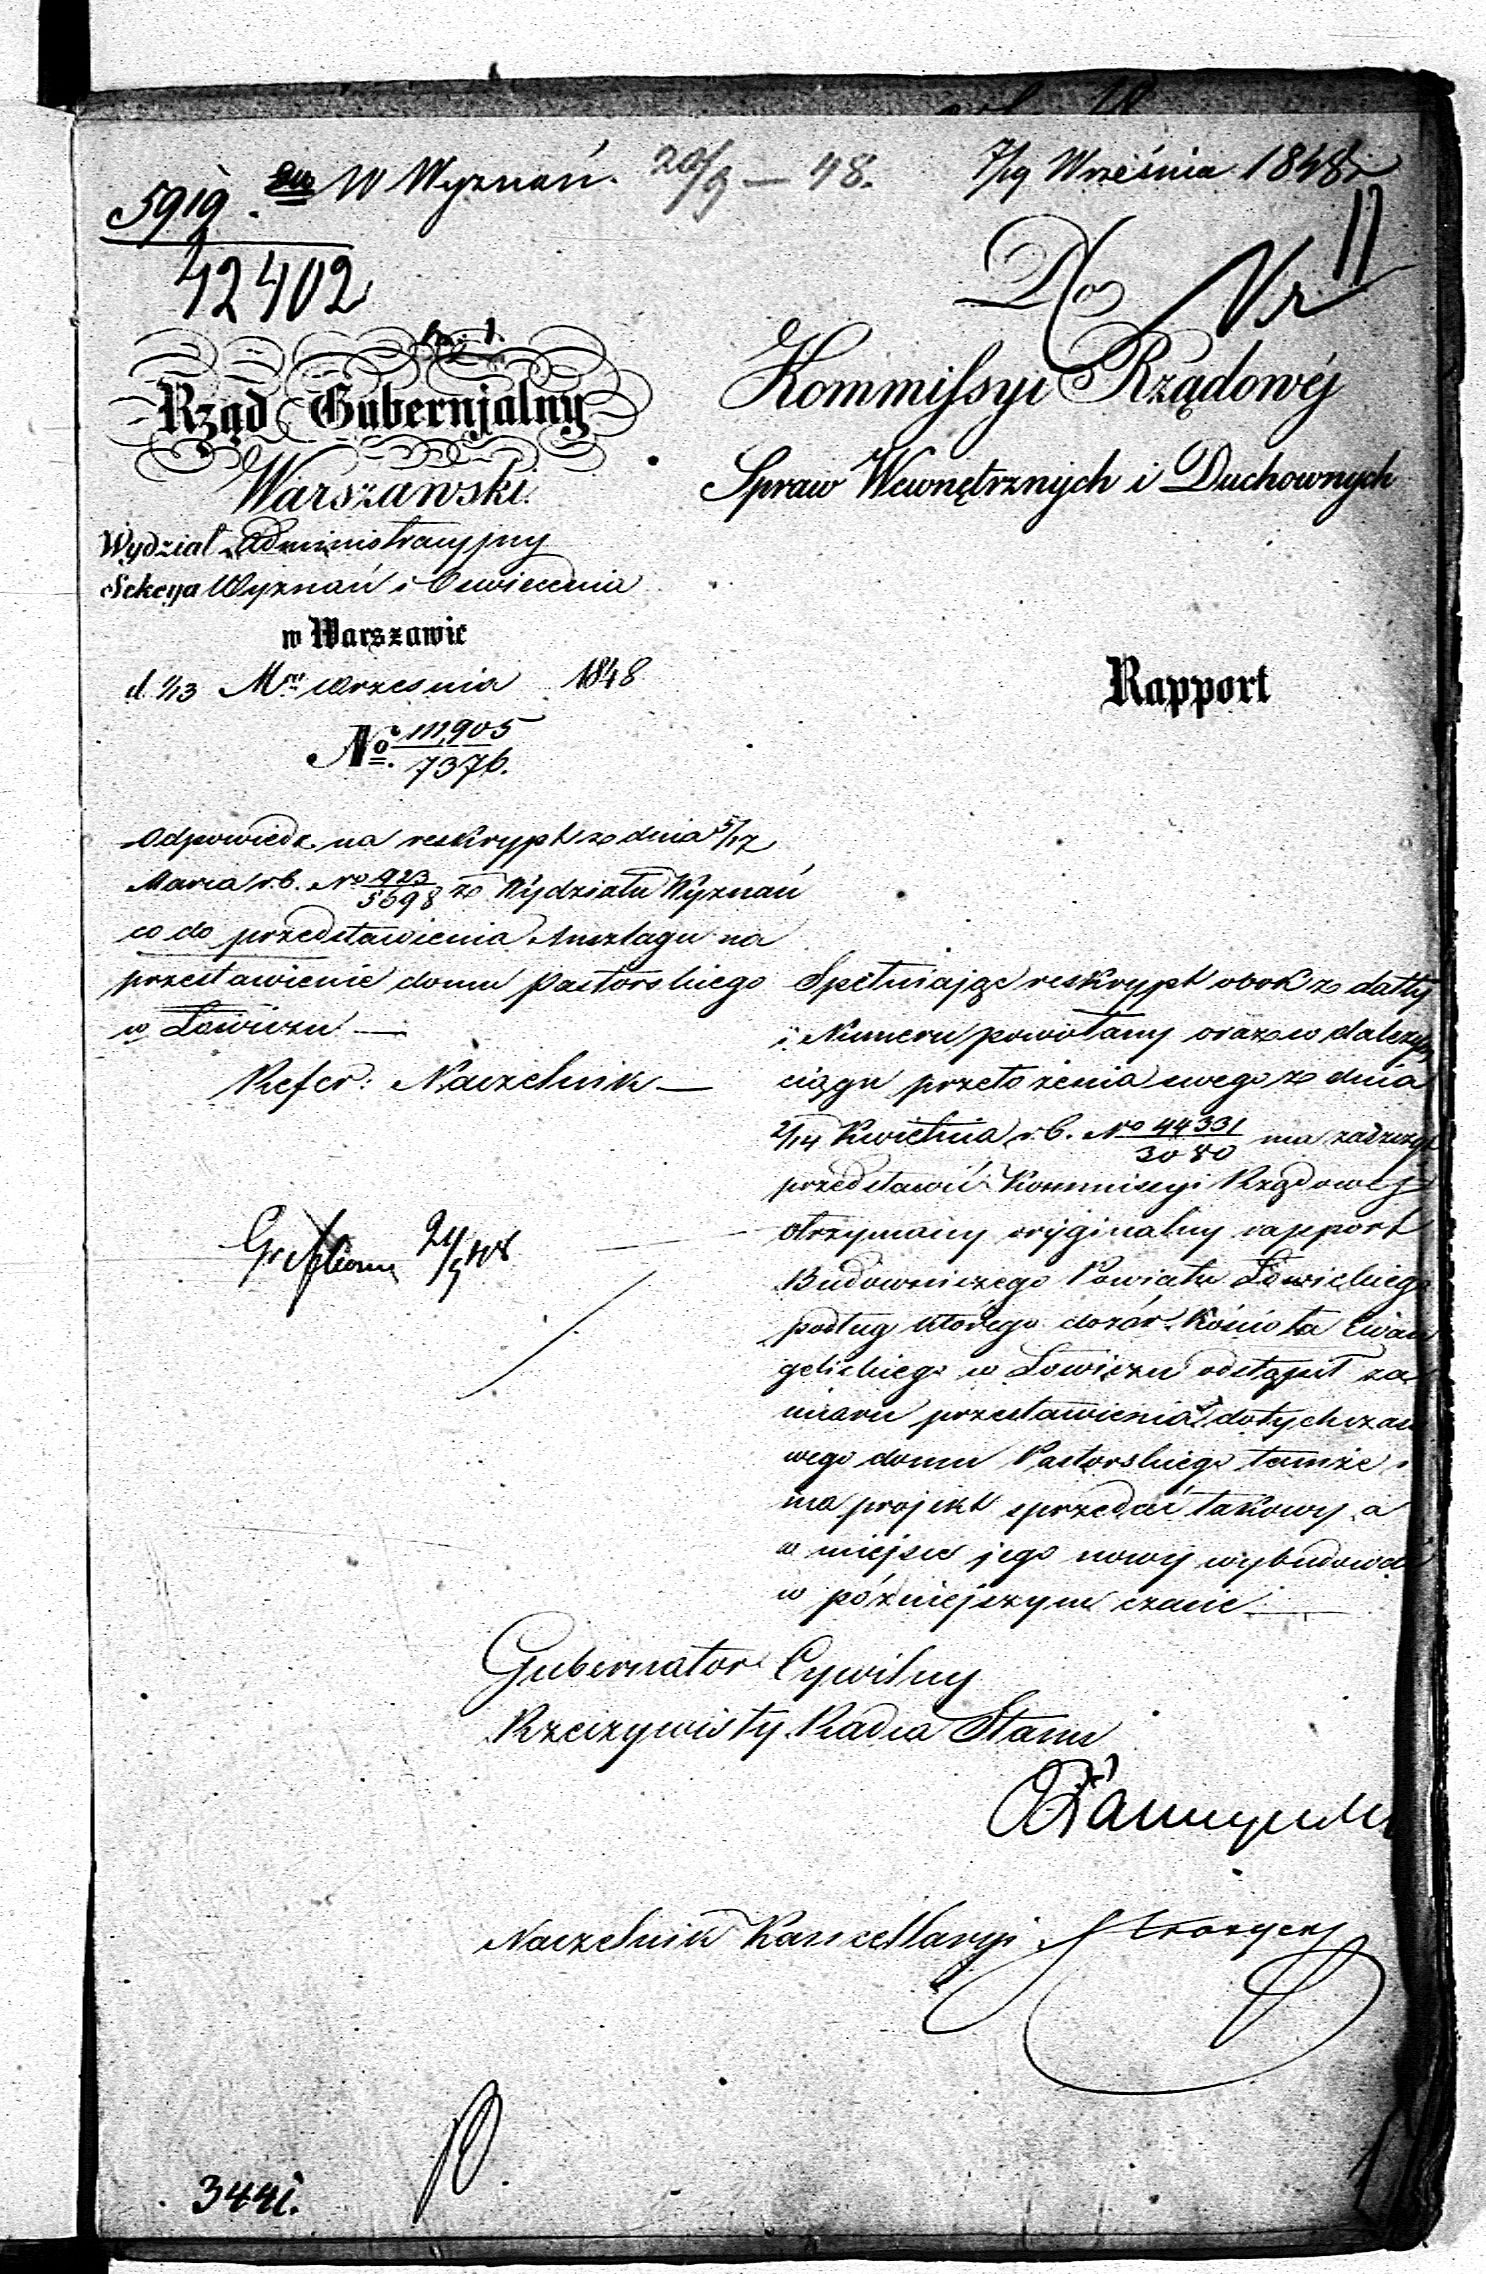 W Wyznań. 20/9 – 48. 7/19 Września 1848 r
5919.
42402
Nr 11
Rząd Gubernjalny
Warszawski.
Wydział Administracyjny
Sekcya Wyznań i Oswiecenia
w Warszawie
d. 1/13 Mca Wrzesnia 1848
No. 111,905/7376.
Odpowiedź na reskrypt z dnia 5/17
Marca r.b. No 923/3698 z Wydziału Wyznań
co do przedstawienia Anszlagu na
przestawienie domu Pastorskiego
w Łowiczu —
Refer: Naczelnik —
Do
Kommissyi Rządowéj
Spraw Wewnętrznych i Duchownych
Rapport
Spełniając reskrypt obok z datty
i Numeru powołany oraz w dalszym
ciągu przełożenia swego z dnia
2/14 Kwietnia r.b. No 44331/3080 ma zaszczyt
przedstawić Kommissyi Rządowej
otrzymany oryginalny rapport
Budowniczego Powiatu Łowickiego
podług którego dozór Kościoła Ewan
gelickiego w Łowiczu odstąpił za
miaru przestawienia dotychczaso
wego domu Pastorskiego tamże i
ma projekt sprzedać takowy, a
w miejsce jego nowy wybudować
w późniejszym czasie —
Gubernator Cywilny
Rzeczywisty Radca Stanu
Naczelnik Kancellaryi
3441.